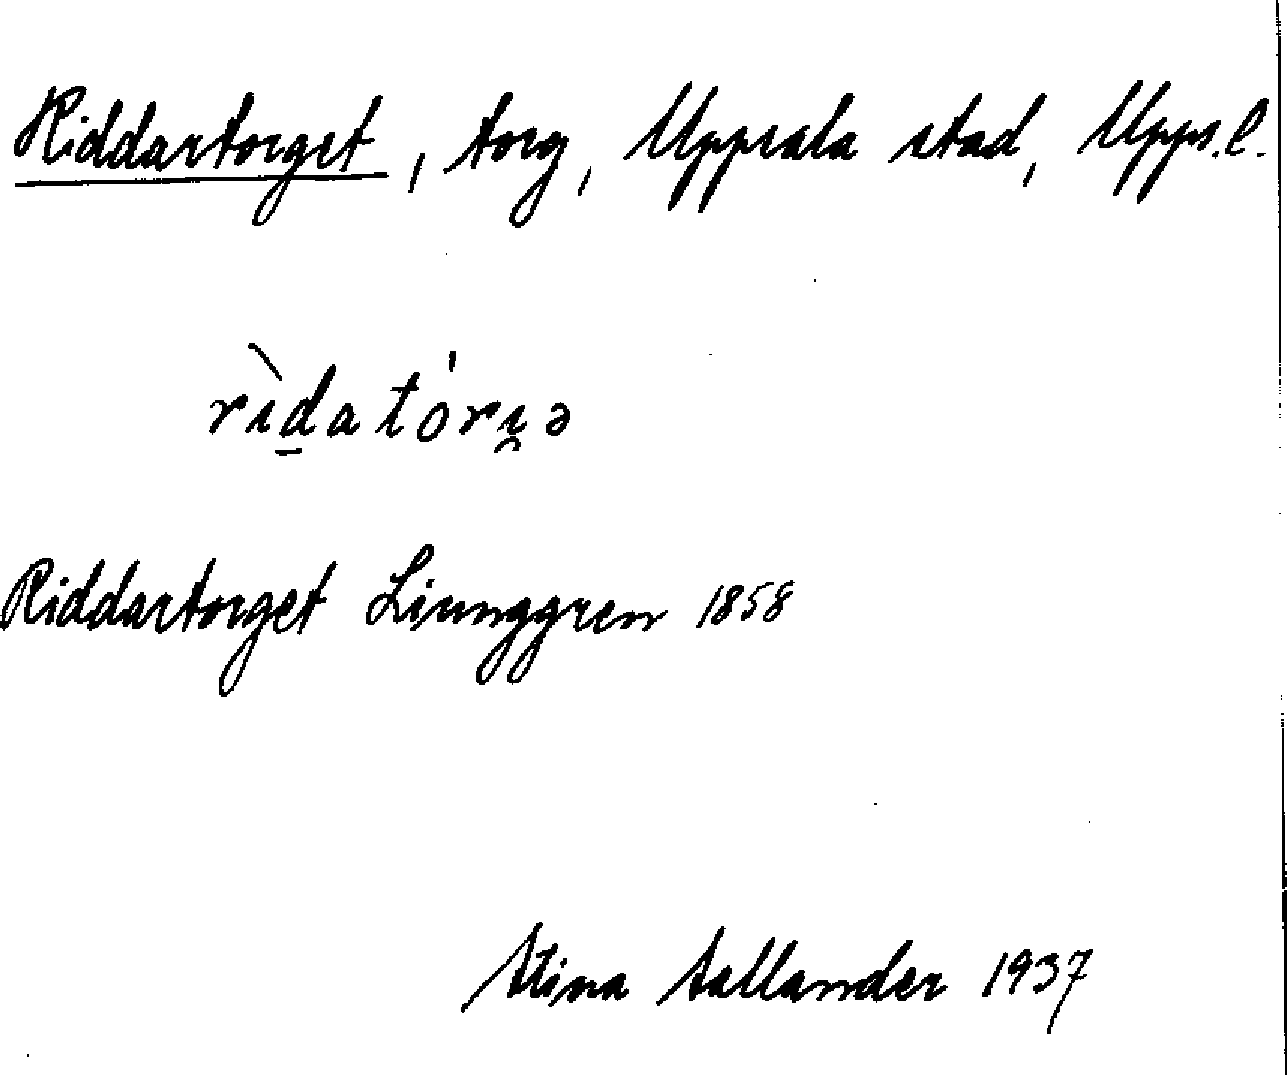 Riddartorget, torg, Uppsala stad, Upps.l.
rìḏatóri̯ə
Riddartorget Ljunggren 1858
Stina Sallander 1937